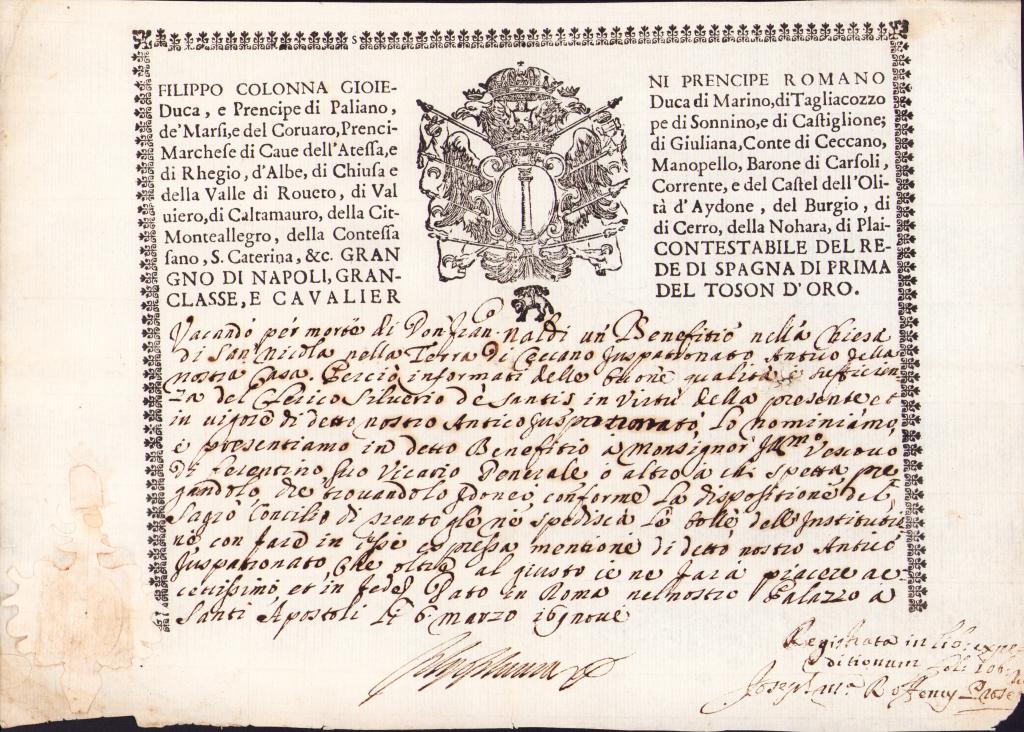 FILIPPO COLONNA GIOIE- NI PRENCIPE ROMANO
Duca, e Prencipe di Paliano, Duca di Marino, di Tagliacozzo
de' Marsi, e del Coruaro, Prenci- pe di Sonnino, e di Castiglione;
Marchese di Caue dell'Atessa, e di Giuliana, Conte di Ceccano,
di Rhegio, d'Albe, di Chiusa e Manopello, Barone di Carsoli,
della Valle di Roueto, di Val Corrente, e del Castel dell'Oli-
uiero, di Caltamauro, della Cit- tà d'Aydone, del Burgio, di
Monteallegro, della Contessa di Cerro, della Nohara, di Plai-
sano, S. Caterina, &c. GRAN CONTESTABILE DEL RE-
GNO DI NAPOLI, GRAN- DE DI SPAGNA DI PRIMA
CLASSE, E CAVALIER DEL TOSON D'ORO.
Vacando per morte di Don Fran. Naldi un Benefitio nella Chiesa
di San Nicola nella Terra di Ceccano Juspatronato Antico della
nostra Casa. Perciò informati delle buone qualità, e sufficien-
za del Clerico Silverio de Santis in virtù della presente et
in vigore di detto nostro Antico Juspatronato, Lo nominiamo,
e presentiamo in detto Benefitio a Monsignor Vescovo
di Ferentino, suo Vicario Generale, o altro à chi spetta pre
gandolo, che trovandolo Idoneo conforme La dispositione del
Sagro Concilio di Trento gle ne spedisca Le bolle dell'Institutio
ne con fare in esse espressa mentione di detto nostro Antico
Juspatronato che oltre al giusto ce ne farà piacere ac
cettissimo, et in fede. Dato in Roma nel nostro Palazzo a
Santi Apostoli li 6 marzo 16
Registrata in lib: expe
ditionum fol:
Joseph